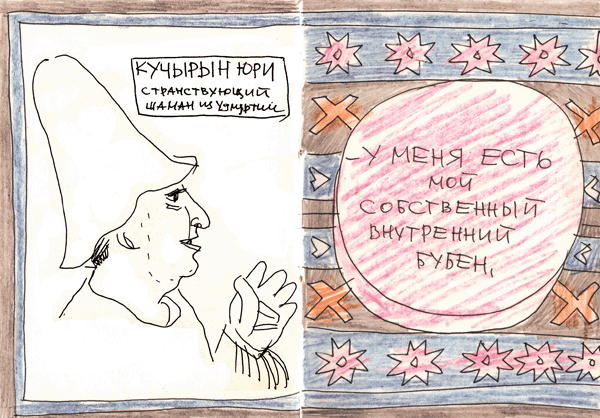 КУЧЫРЫН ЮРИ
СТРАНСТВУЮЩИЙ
ШАМАН ИЗ УДМУРТИИ
-У МЕНЯ ЕСТЬ
МОЙ
СОБСТВЕННЫЙ
ВНУТРЕННИЙ
БУБЕН,